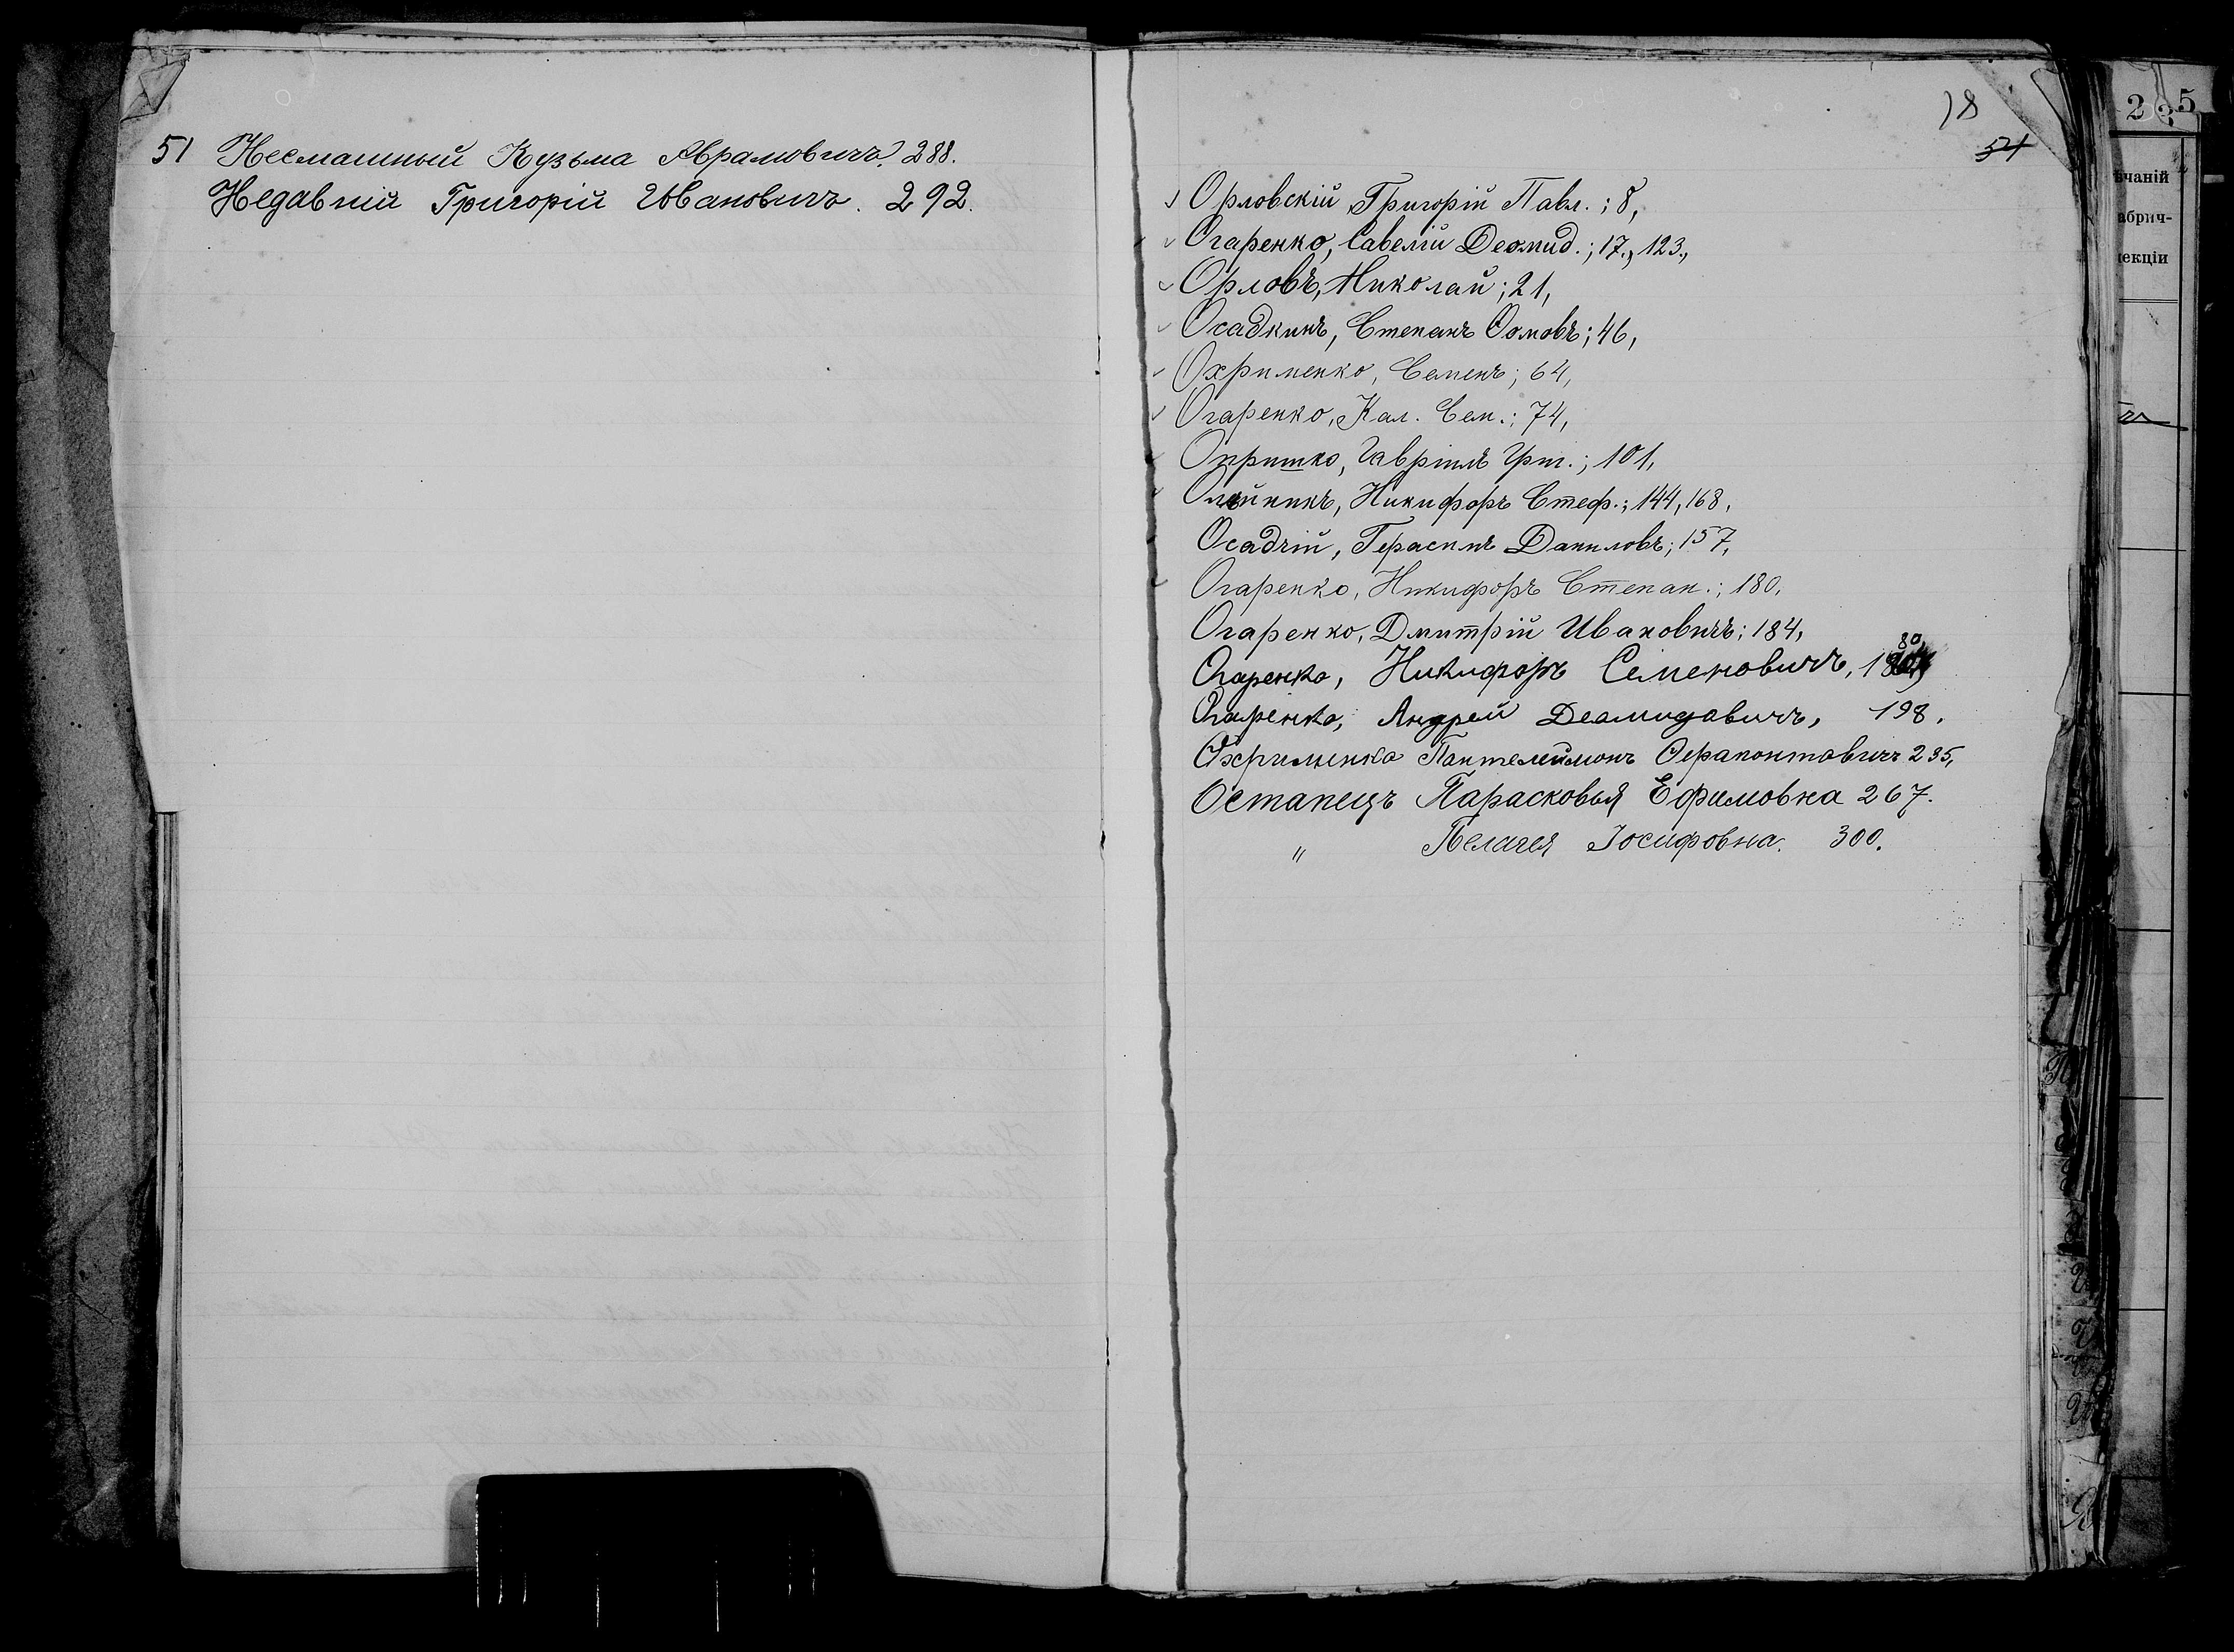 51 Несмашный Кузьма Аврамовичъ. 288.
Недавній Григорій Ивановичъ. 292.
18
54
Орловскій, Григорій Павл.; 8,
Огаренко, Савелій Деомид.; 17., 123.,
Орловъ, Николай; 21,
Осадкинъ, Степанъ Ѳомовъ; 46,
Охрименко, Семенъ; 64,
Огаренко, Кал. Сем.; 74,
Опришко, Гавріилъ Григ.; 101,
Олейникъ, Никифоръ Стеф.; 144, 168,
Осадчій, Герасимъ Даниловъ; 157,
Огаренко, Никифоръ Степан.; 180,
Огаренко, Дмитрій Ивановичъ; 184,
Огаренко, Никифоръ Семеновичъ, 180,
Огаренко, Андрей Деомидовичъ, 198.
Охрименко Пантелеймонъ Ѳерапонтовичъ 235,
Остапецъ Парасковья Ефимовна 267.
" Пелагея Іосифовна. 300.
2 5
чаній
абрич-
екціи